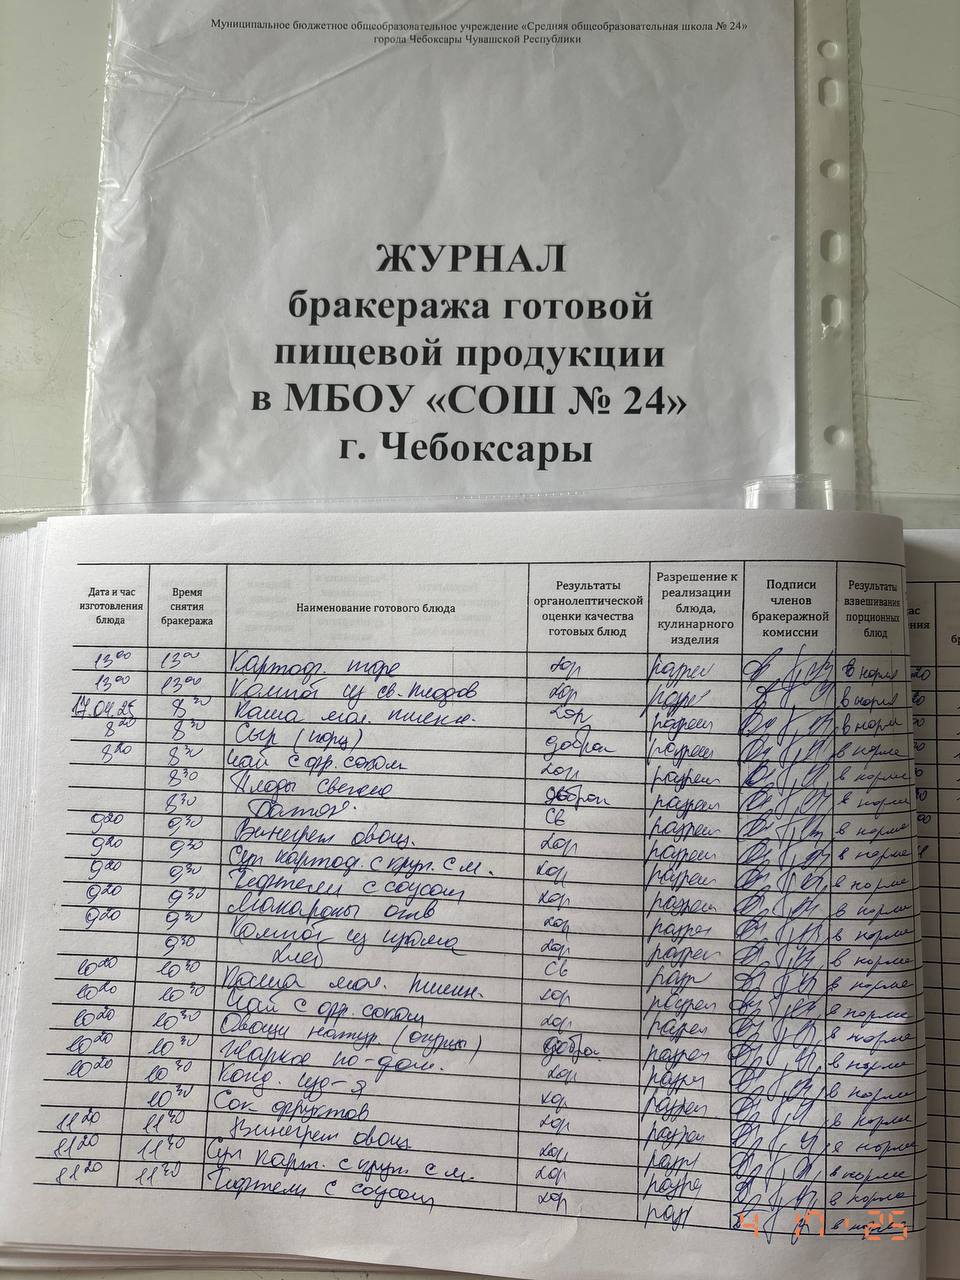 Муниципальное бюджетное общеобразовательное учреждение «Средняя общеобразовательная школа № 24»
города Чебоксары Чувашской Республики
ЖУРНАЛ
бракеража готовой
пищевой продукции
в МБОУ «СОШ № 24»
г. Чебоксары
Дата и час изготовления блюда
Время снятия бракеража
Наименование готового блюда
Результаты органолептической оценки качества готовых блюд
Разрешение к реализации блюда, кулинарного изделия
Подписи членов бракеражной комиссии
Результаты взвешивания порционных блюд
13 00 13 00 Картоф. пюре хор разреш в норме
13 00 13 00 Компот из св. плодов хор разре в норме
17.04.25 8 30 Каша мол. пшенн. хор разреш в норме
8 20 8 30 Сыр (порц) добрак разреш в норме
8 20 8 30 Чай с фр. соком хор разреш в норме
8 30 Плоды свежие доброк разреш в норме
8 30 Батон. св разреш в норме
9 20 9 30 Винегрет овощ. хор разреш в норме
9 20 9 30 Суп картоф. с круп. с м. хор разреш в норме
9 20 9 30 Тефтели с соусом хор разреш в норме
9 20 9 30 Макароны отв хор разреш в норме
9 20 9 30 Компот из изюма хор разреш в норме
9 30 Хлеб св разр в норме
10 20 10 30 Каша мол. пшенн. хор разреш в норме
10 20 10 30 Чай с фр. соком хор разреш в норме
10 20 10 30 Овощи натур. (огурцы) добро. разреш в норме
10 20 10 30 Жаркое по-дом. хор разреш в норме
10 20 10 30 Конд. изд-я хор разреш в норме
10 30 Сок фруктов хор разреш в норме
11 20 11 30 Винегрет овощ хор разр в норме
11 20 11 30 Суп карт. с круп с м. хор разре в норме
11 20 11 30 Тефтели с соусом хор разр в норме
4 17 '25